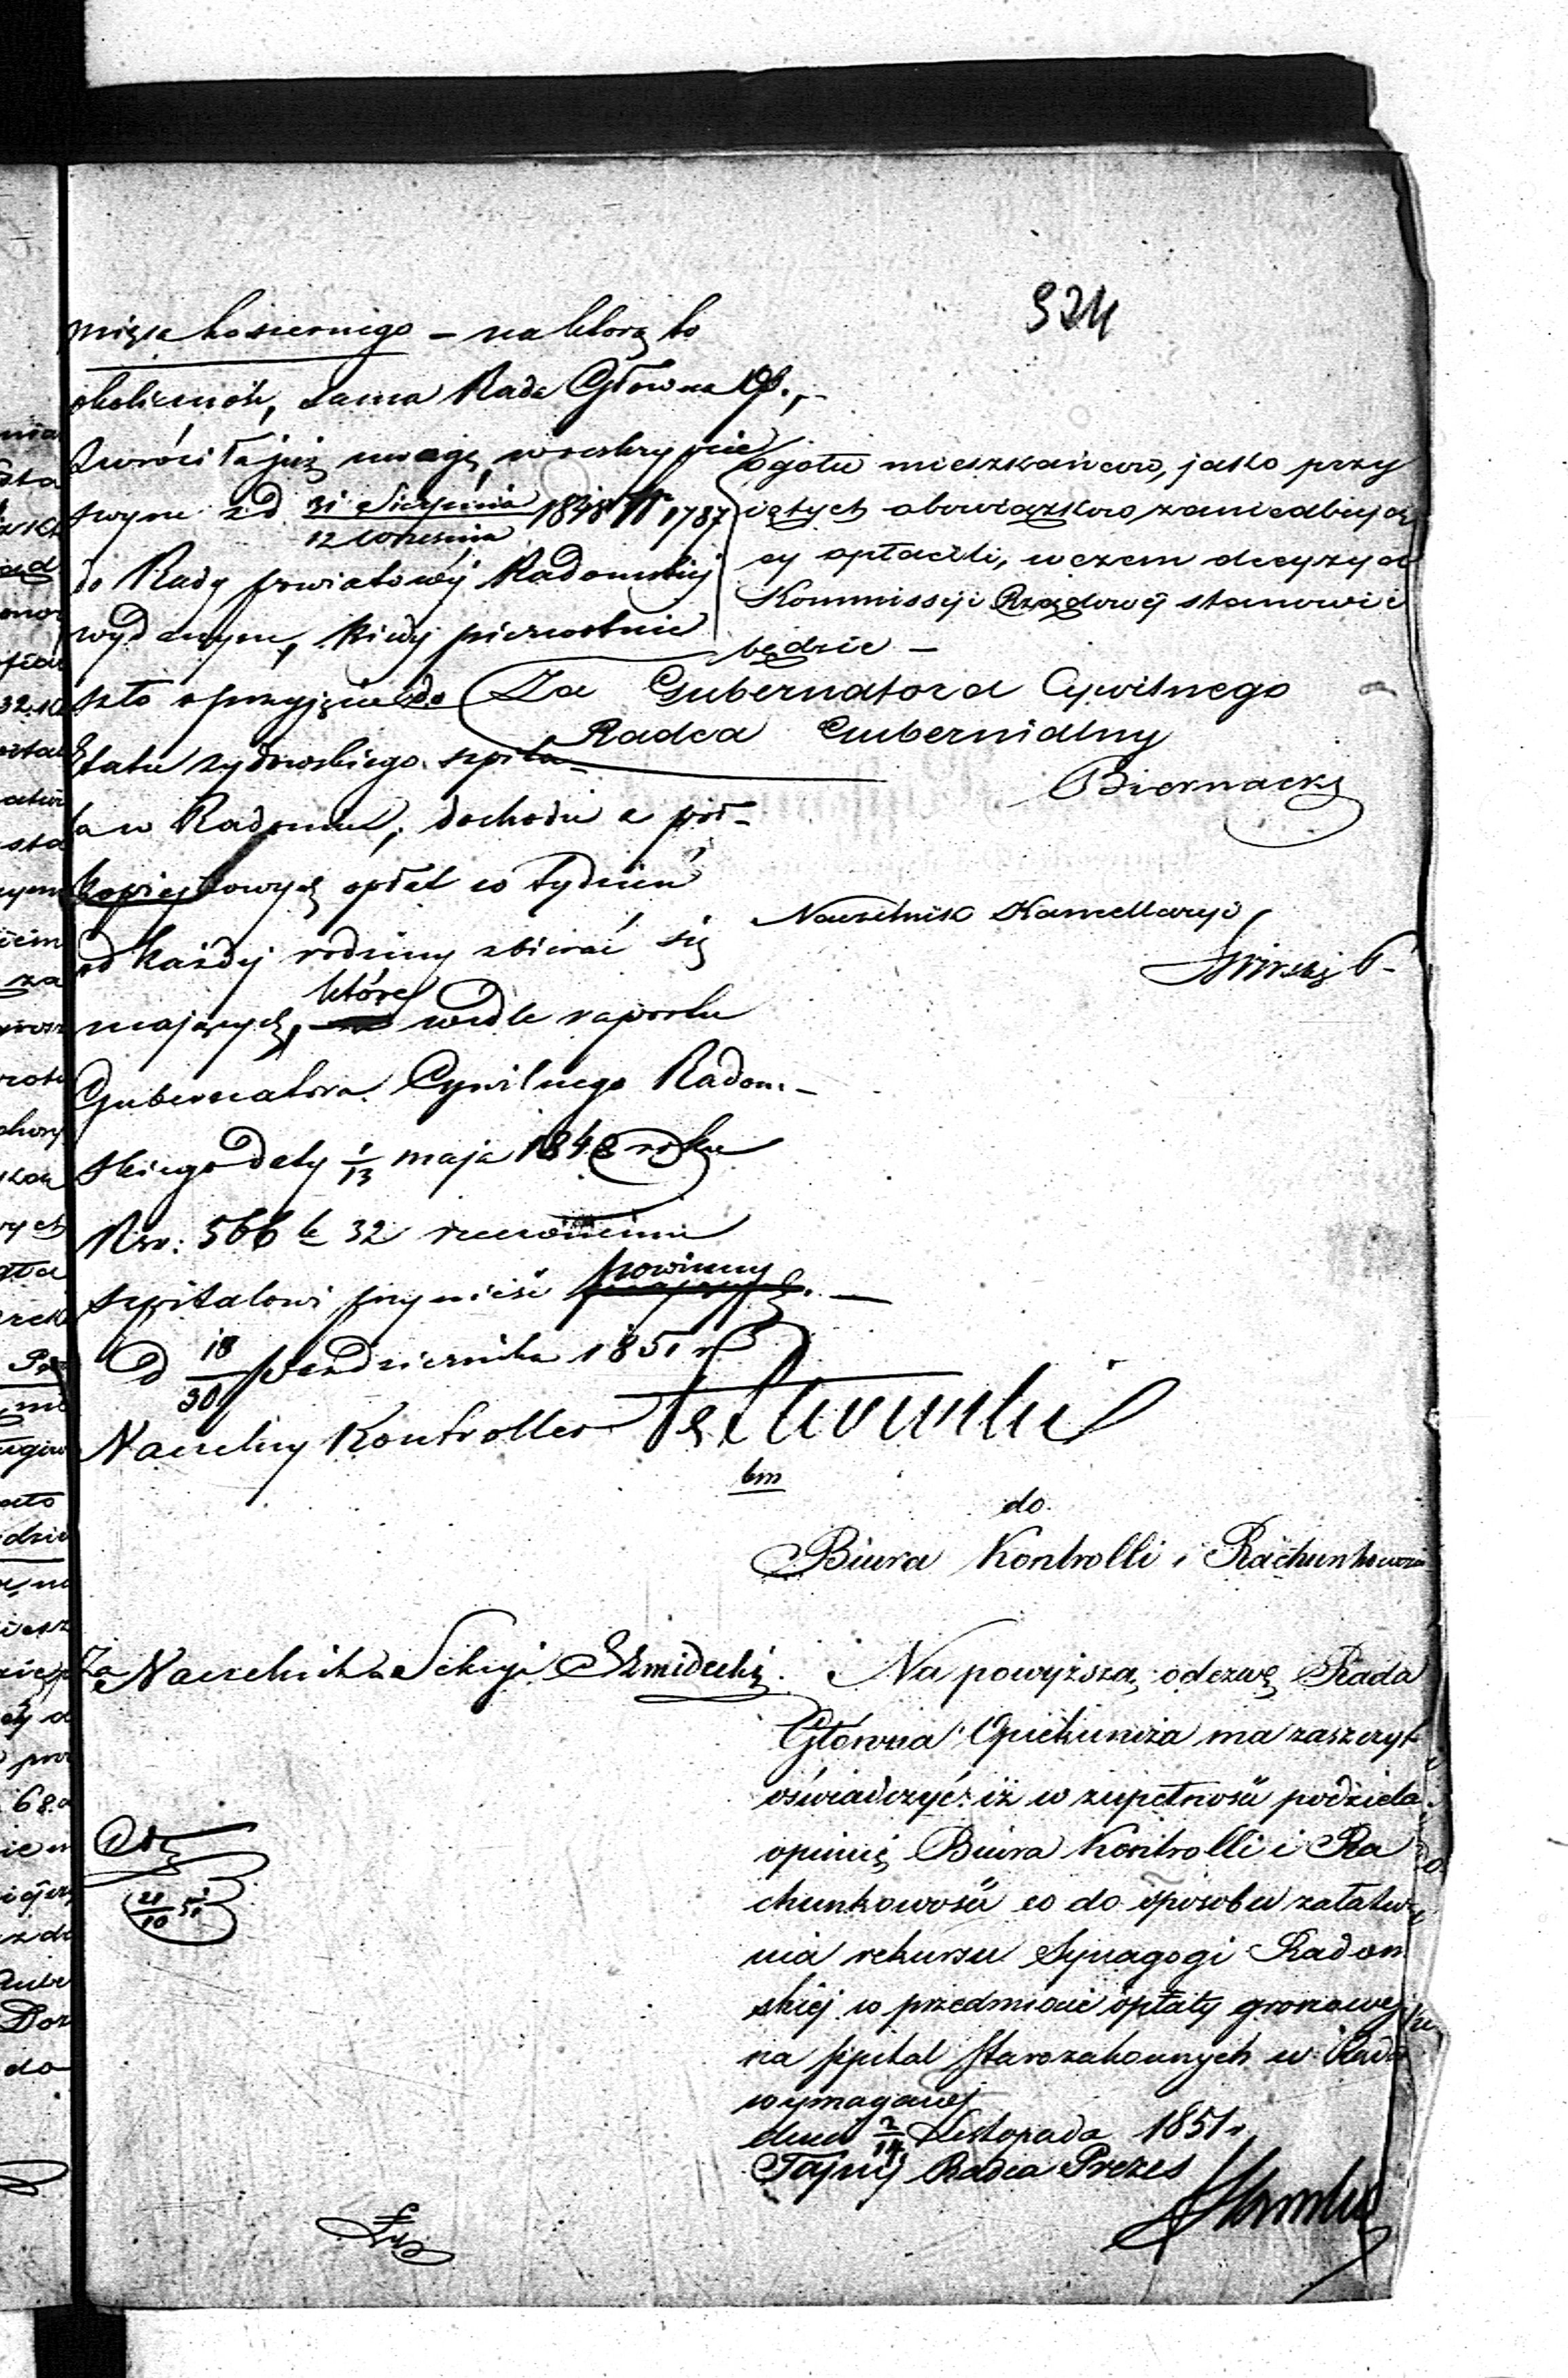 324
mięsa kosiernego – na którą to
okoliczność, sama Rada Główna Op.,–
zwróciła już uwagę, w reskrypcie
swym z d 31 Sierpnia / 12 Września 1848 N 1787
do Rady powiatowéj Radomskiéj
wydanym, kiedy pierwotnie
szło o przyjęcie do
Etatu żydowskiego szpita-
la w Radomiu, dochodu z pół-
kopiejkowych opłat w tydzień
od każdéj rodziny zbierać się
mających, które wedle raportu
Gubernatora Cywilnego Radom-
skiego daty 1/13 maja 1848 roku
Nro: 566 32
szpitalowi przynieść powinny. –
D 18/30 Października 1851 r
Naczelny Kontroller
Za Naczelnika Sekcyi Szmidecki.
21/10 51
ogółu mieszkańców, jako przy
iętych obowiązków zaniedbując
cy opłacili, w czem decyzya
Kommissyi Rządowéj stanowić
będzie –
Za Gubernatora Cywilnego
Radca Gubernialny
Biernacki
Naczelnik Kancellaryi
do
Biura Kontrolli i Rachunkowości
Na powyższą odezwę Rada
Główna Opiekuńcza ma zaszczyt
oświadczyć: iż w zupełności podziela
opinię Biura Kontrolli i Ra
chunkowości co do sposobu załatwie
nia rekursu Synagogi Radom
skiej w przedmiocie opłaty groszowej
na szpital Starozakonnych w Rado
wymaganej
dnia 2/14 Listopada 1851 r.
Tajny Radca Prezes